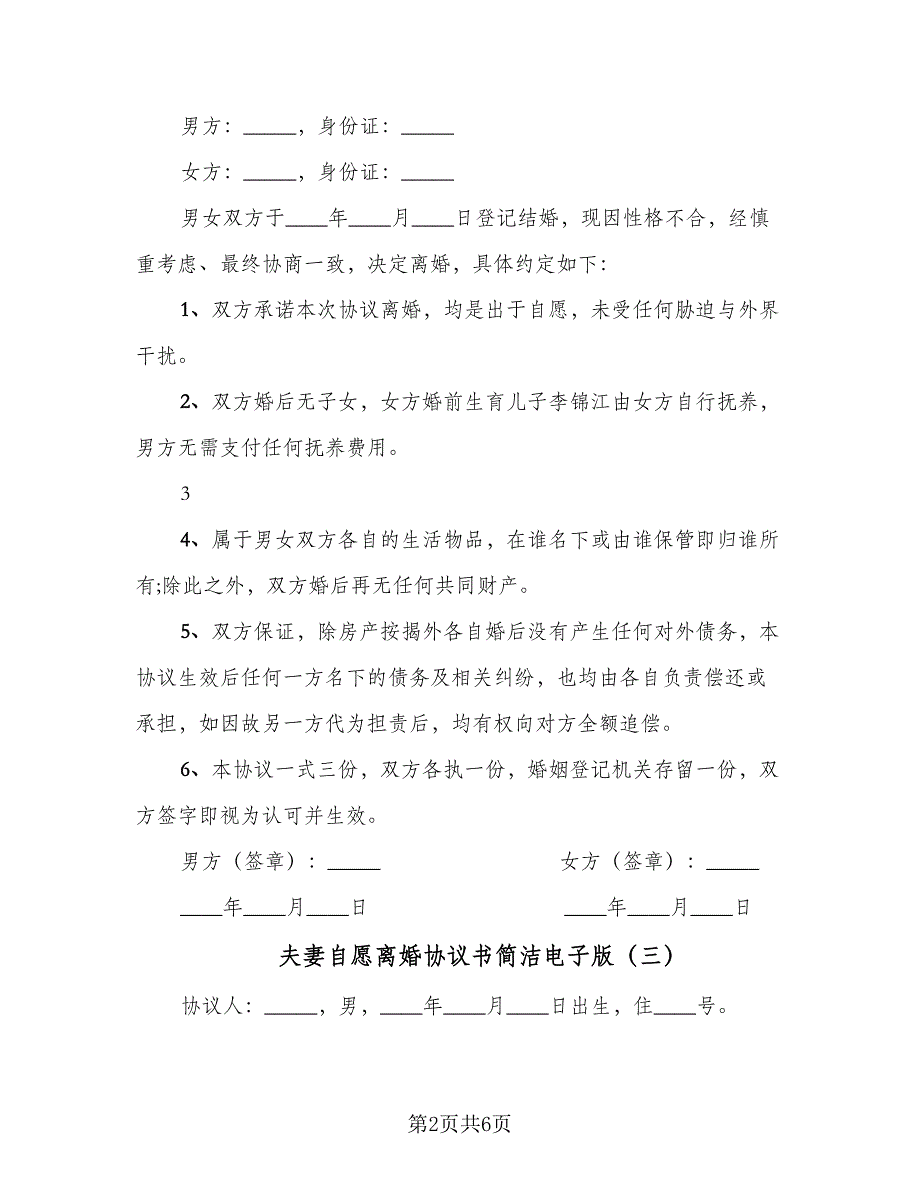 男方：_____，身份证：_____
女方：_____，身份证：_____
男女双方于____年____月____日登记结婚，现因性格不合，经慎
重考虑、最终协商一致，决定离婚，具体约定如下：
1、双方承诺本次协议离婚，均是出于自愿，未受任何胁迫与外界
干扰。
2、双方婚后无子女，女方婚前生育儿子李锦江由女方自行抚养，
男方无需支付任何抚养费用。
3
4、属于男女双方各自的生活物品，在谁名下或由谁保管即归谁所
有;除此之外，双方婚后再无任何共同财产。
5、双方保证，除房产按揭外各自婚后没有产生任何对外债务，本
协议生效后任何一方名下的债务及相关纠纷，也均由各自负责偿还或
承担，如因故另一方代为担责后，均有权向对方全额追偿。
6、本协议一式三份，双方各执一份，婚姻登记机关存留一份，双
方签字即视为认可并生效。
男方（签章）：_____ 女方（签章）：_____
____年____月____日 ____年____月____日
夫妻自愿离婚协议书简洁电子版（三）
协议人：_____，男，____年____月____日出生，住____号。
第2页共6页